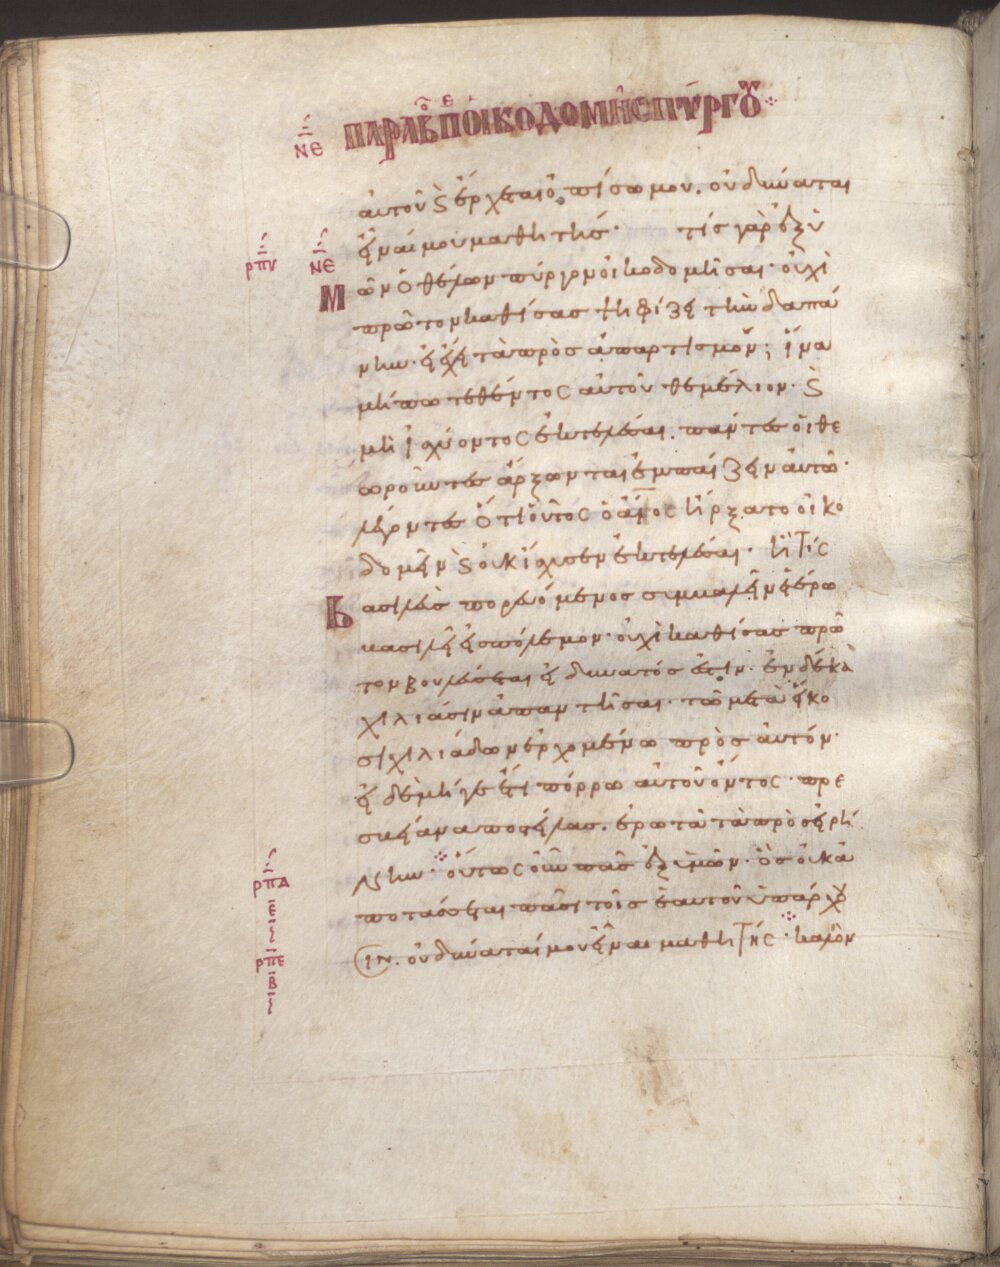 ΝΕ ΠΑΡΑΒ ΠΕ ΟΙΚΟΔΟΜΗΣ ΠΥΡΓΟΥ
αὐτοῦ ϗ ἔρχεται ὀπίσω μου. οὐ δύναται
εἶναί μου μαθητής· τίς γὰρ ἐξ ὑ
ρπγ ΝΕ
μῶν ὁ θέλων πύργον οἰκοδομῆσαι· οὐχὶ
πρῶτον καθίσας ψηφίζει τὴν δαπά
νην· εἰ ἔχει τὰ πρὸς ἀπαρτισμόν; ἵνα
μήποτε θέντος αὐτοῦ θεμέλιον· ϗ
μὴ ἰσχύοντος ἐκτελέσαι. πάντες οἱ θε
ωροῦντες ἄρξωνται ἐμπαίζειν αὐτῶ·
λέγοντες ὅτι οὗτος ὁ ἄνος ἤρξατο οἰκο
δομεῖν ϗ οὐκ ἴσχυσεν ἐκτελέσαι· ἢ τίς
βασιλεὺς πορευόμενος συμβαλεῖν ἑτέρω
βασιλεῖ εἰς πόλεμον· οὐχὶ καθίσας πρῶ
τον βουλεύεται εἰ δυνατός ἐστιν· ἐν δέκα
χιλιάσιν ἀπαντῆσαι· τῶ μετὰ εἴκο
σι χιλιάδων ἐρχομένω πρὸς αὐτόν·
εἰ δὲ μήγε ἔτι πόρρω αὐτοῦ ὄντος· πρε
σβείαν ἀποστείλας. ἐρωτᾶ τὰ πρὸς εἰρή
νην· οὕτως οὖν πᾶς ἐξ ὑμῶν· ὃς οὐκ ἀ
ρπδ
ε
ποτάσσεται πᾶσι τοῖς ἑαυτοῦ ὑπάρχου
σιν. οὐ δύναταί μου εἶναι μαθητής· καλὸν
ρπε
β